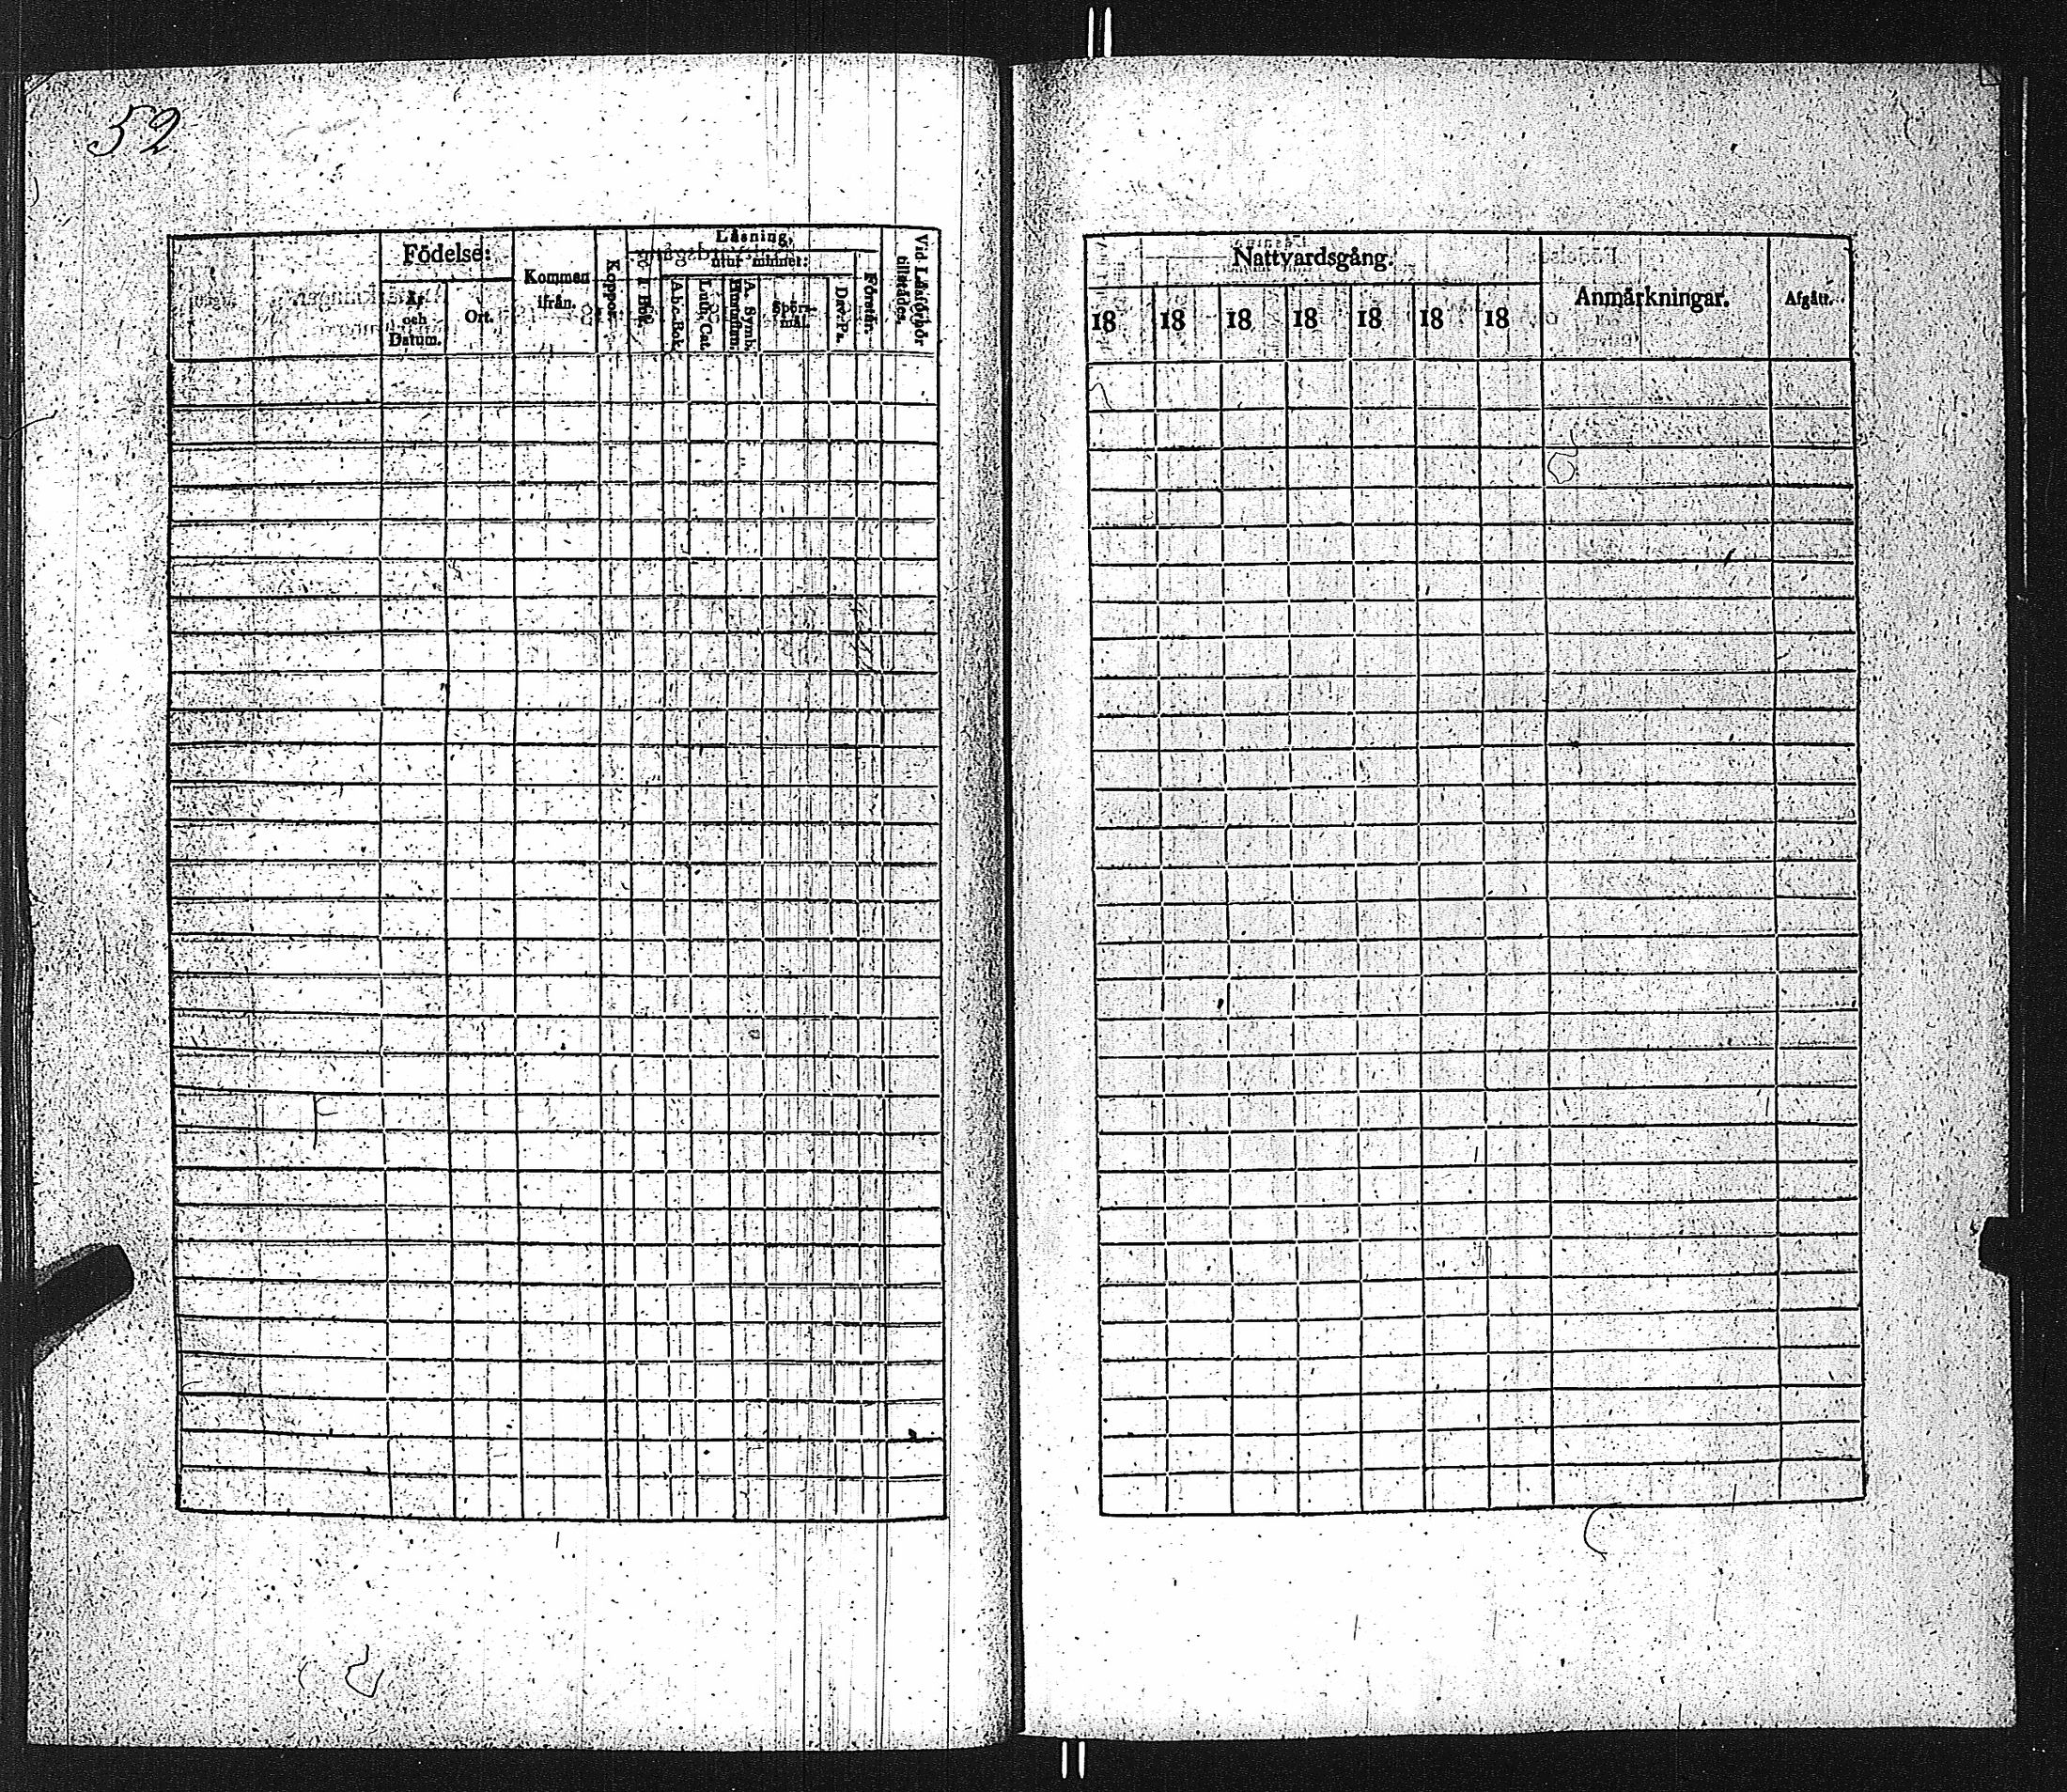 52
Födelse:
År
och
Datum.
Ort.
Kommen
ifrån.
Koppor.
Läsning,
utur minnet:
I Bok.
A.b.c.-Bok.
Luth. Cat.
A. Symb.
Hustafl.
Spörs-
mål.
Dav. Ps.
Förstår.
Vid Läsförhör
tillstädes.
Nattvardsgång.
18 18 18 18 18 18 18
Anmärkningar.
Afgått.